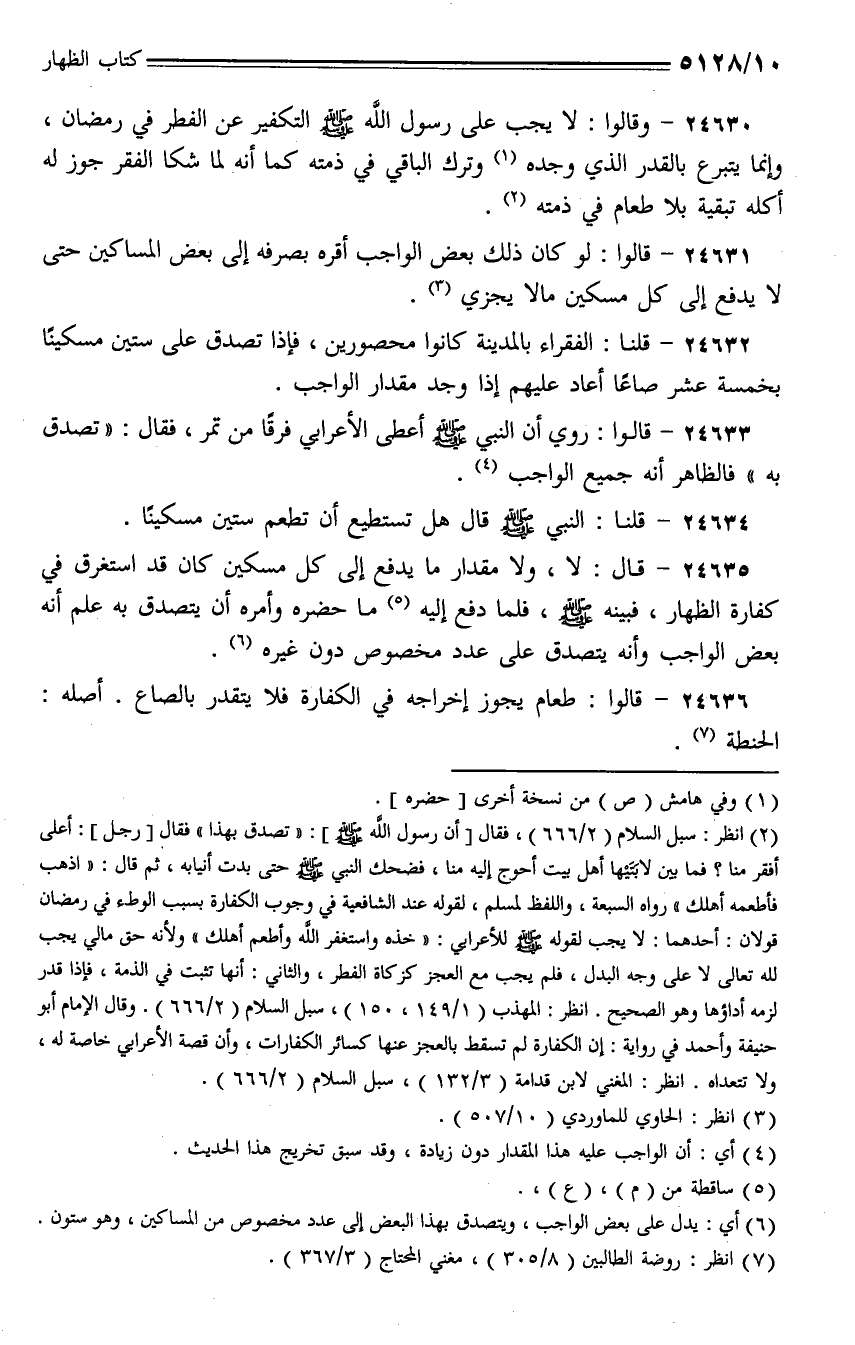 ٥١٢٨/١٠ كتاب الظهار
٢٤٦٣٠ - وقالوا : لا يجب على رسول اللَّه ﷺ التكفير عن الفطر في رمضان ،
وإنما يتبرع بالقدر الذي وجده (١) وترك الباقي في ذمته كما أنه لما شكا الفقر جوز له
أكله تبقية بلا طعام في ذمته (٢) .
٢٤٦٣١ - قالوا : لو كان ذلك بعض الواجب أقره بصرفه إلى بعض المساكين حتى
لا يدفع إلى كل مسكين مالا يجزي (٣) .
٢٤٦٣٢ - قلنا : الفقراء بالمدينة كانوا محصورين ، فإذا تصدق على ستين مسكينًا
بخمسة عشر صاعًا أعاد عليهم إذا وجد مقدار الواجب .
٢٤٦٣٣ - قالوا : روي أن النبي ﷺ أعطى الأعرابي فرقًا من تمر ، فقال : « تصدق
به » فالظاهر أنه جميع الواجب (٤) .
٢٤٦٣٤ - قلنا : النبي ﷺ قال هل تستطيع أن تطعم ستين مسكينًا .
٢٤٦٣٥ - قال : لا ، ولا مقدار ما يدفع إلى كل مسكين كان قد استغرق في
كفارة الظهار ، فبينه ﷺ ، فلما دفع إليه (٥) ما حضره وأمره أن يتصدق به علم أنه
بعض الواجب وأنه يتصدق على عدد مخصوص دون غيره (٦) .
٢٤٦٣٦ - قالوا : طعام يجوز إخراجه في الكفارة فلا يتقدر بالصاع . أصله :
الحنطة (٧) .
(١) وفي هامش ( ص ) من نسخة أخرى [ حضره ] .
(٢) انظر : سبل السلام ( ٦٦٦/٢ ) ، فقال [ أن رسول اللَّه ﷺ ] : « تصدق بهذا » فقال [ رجل ] : أعلى
أفقر منا ؟ فما بين لابَتَيْها أهل بيت أحوج إليه منا ، فضحك النبي ﷺ حتى بدت أنيابه ، ثم قال : « اذهب
فأطعمه أهلك » رواه السبعة ، واللفظ لمسلم ، لقوله عند الشافعية في وجوب الكفارة بسبب الوطء في رمضان
قولان : أحدهما : لا يجب لقوله ﷺ للأعرابي : « خذه واستغفر اللَّه وأطعم أهلك » ولأنه حق مالي يجب
لله تعالى لا على وجه البدل ، فلم يجب مع العجز كزكاة الفطر ، والثاني : أنها تثبت في الذمة ، فإذا قدر
لزمه أداؤها وهو الصحيح . انظر : المهذب ( ١٤٩/١ ، ١٥٠ ) ، سبل السلام ( ٦٦٦/٢ ) . وقال الإمام أبو
حنيفة وأحمد في رواية : إن الكفارة لم تسقط بالعجز عنها كسائر الكفارات ، وأن قصة الأعرابي خاصة له ،
ولا تتعداه . انظر : المغني لابن قدامة ( ١٣٢/٣ ) ، سبل السلام ( ٦٦٦/٢ ) .
(٣) انظر : الحاوي للماوردي ( ٥٠٧/١٠ ) .
(٤) أي : أن الواجب عليه هذا المقدار دون زيادة ، وقد سبق تخريج هذا الحديث .
(٥) ساقطة من ( م ) ، ( ع ) ، .
(٦) أي : يدل على بعض الواجب ، ويتصدق بهذا البعض إلى عدد مخصوص من المساكين ، وهو ستون .
(٧) انظر : روضة الطالبين ( ٣٠٥/٨ ) ، مغني المحتاج ( ٣٦٧/٣ ) .